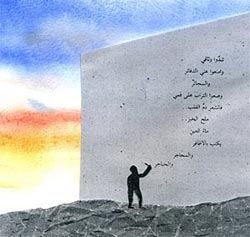 شدُّوا وثاقي
وامنعوا عني الدفاتر
والسجائر
وضعوا الترابَ على فمي
فالشعر دمُ القلب
ملح الخبز ..
ماء العين
يكتب بالأظافر
والمحاجر
والخناجر